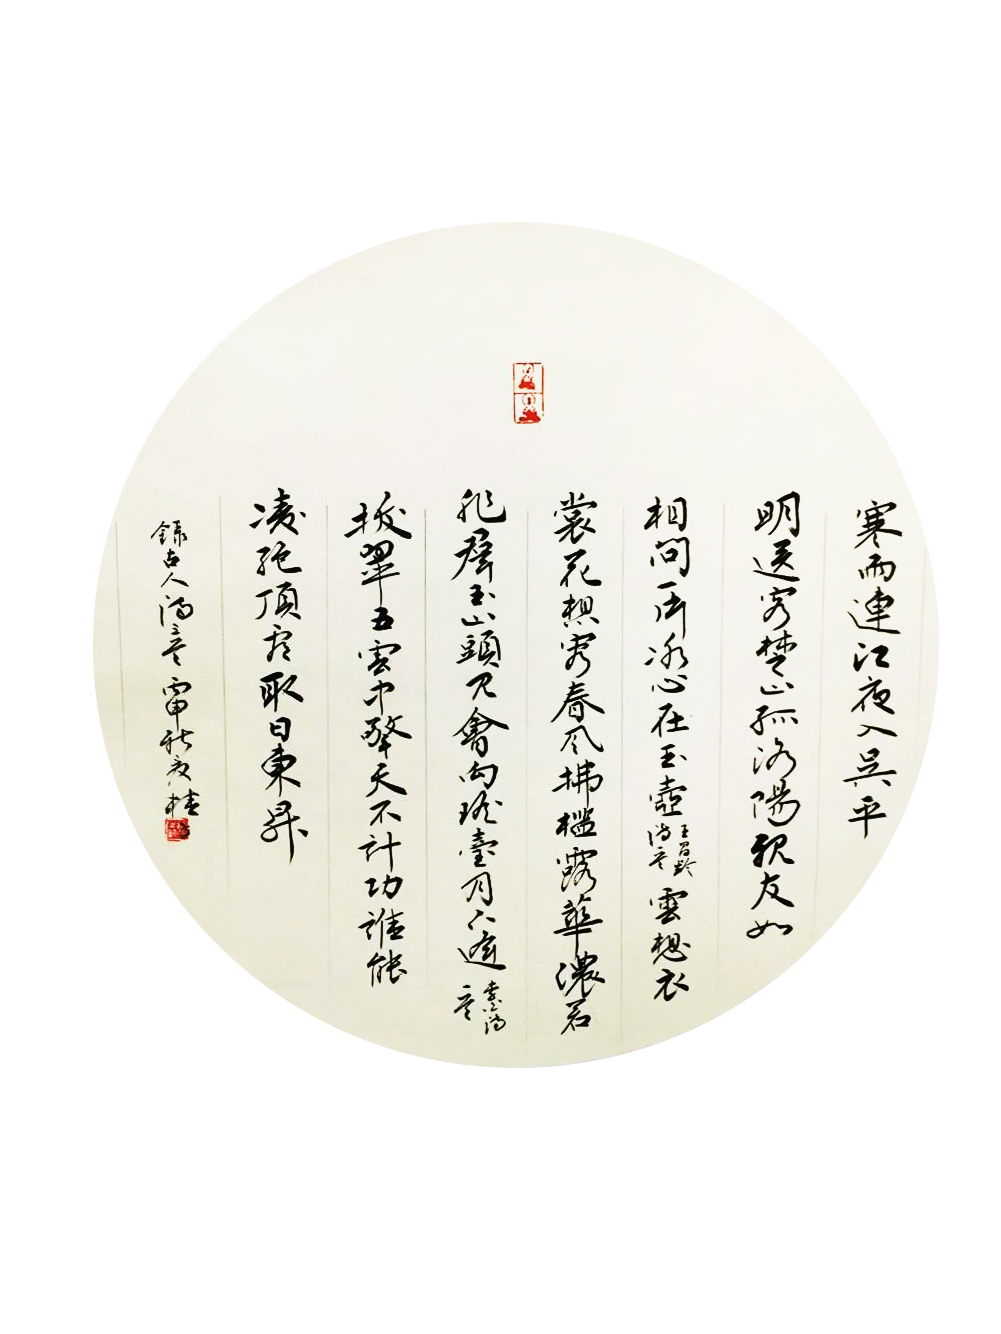 寒雨連江夜入吳平
明送客楚山孤洛陽親友如
相問一片冰心在玉壺王昌齡詩一首雲想衣
裳花想容春風拂檻露華濃若
非群玉山頭見會向瑤臺月下逢李白詩一首
拔翠五雲中擎天不計功誰能
凌絕頂看取日東昇
錄古人詩三首丙申秋